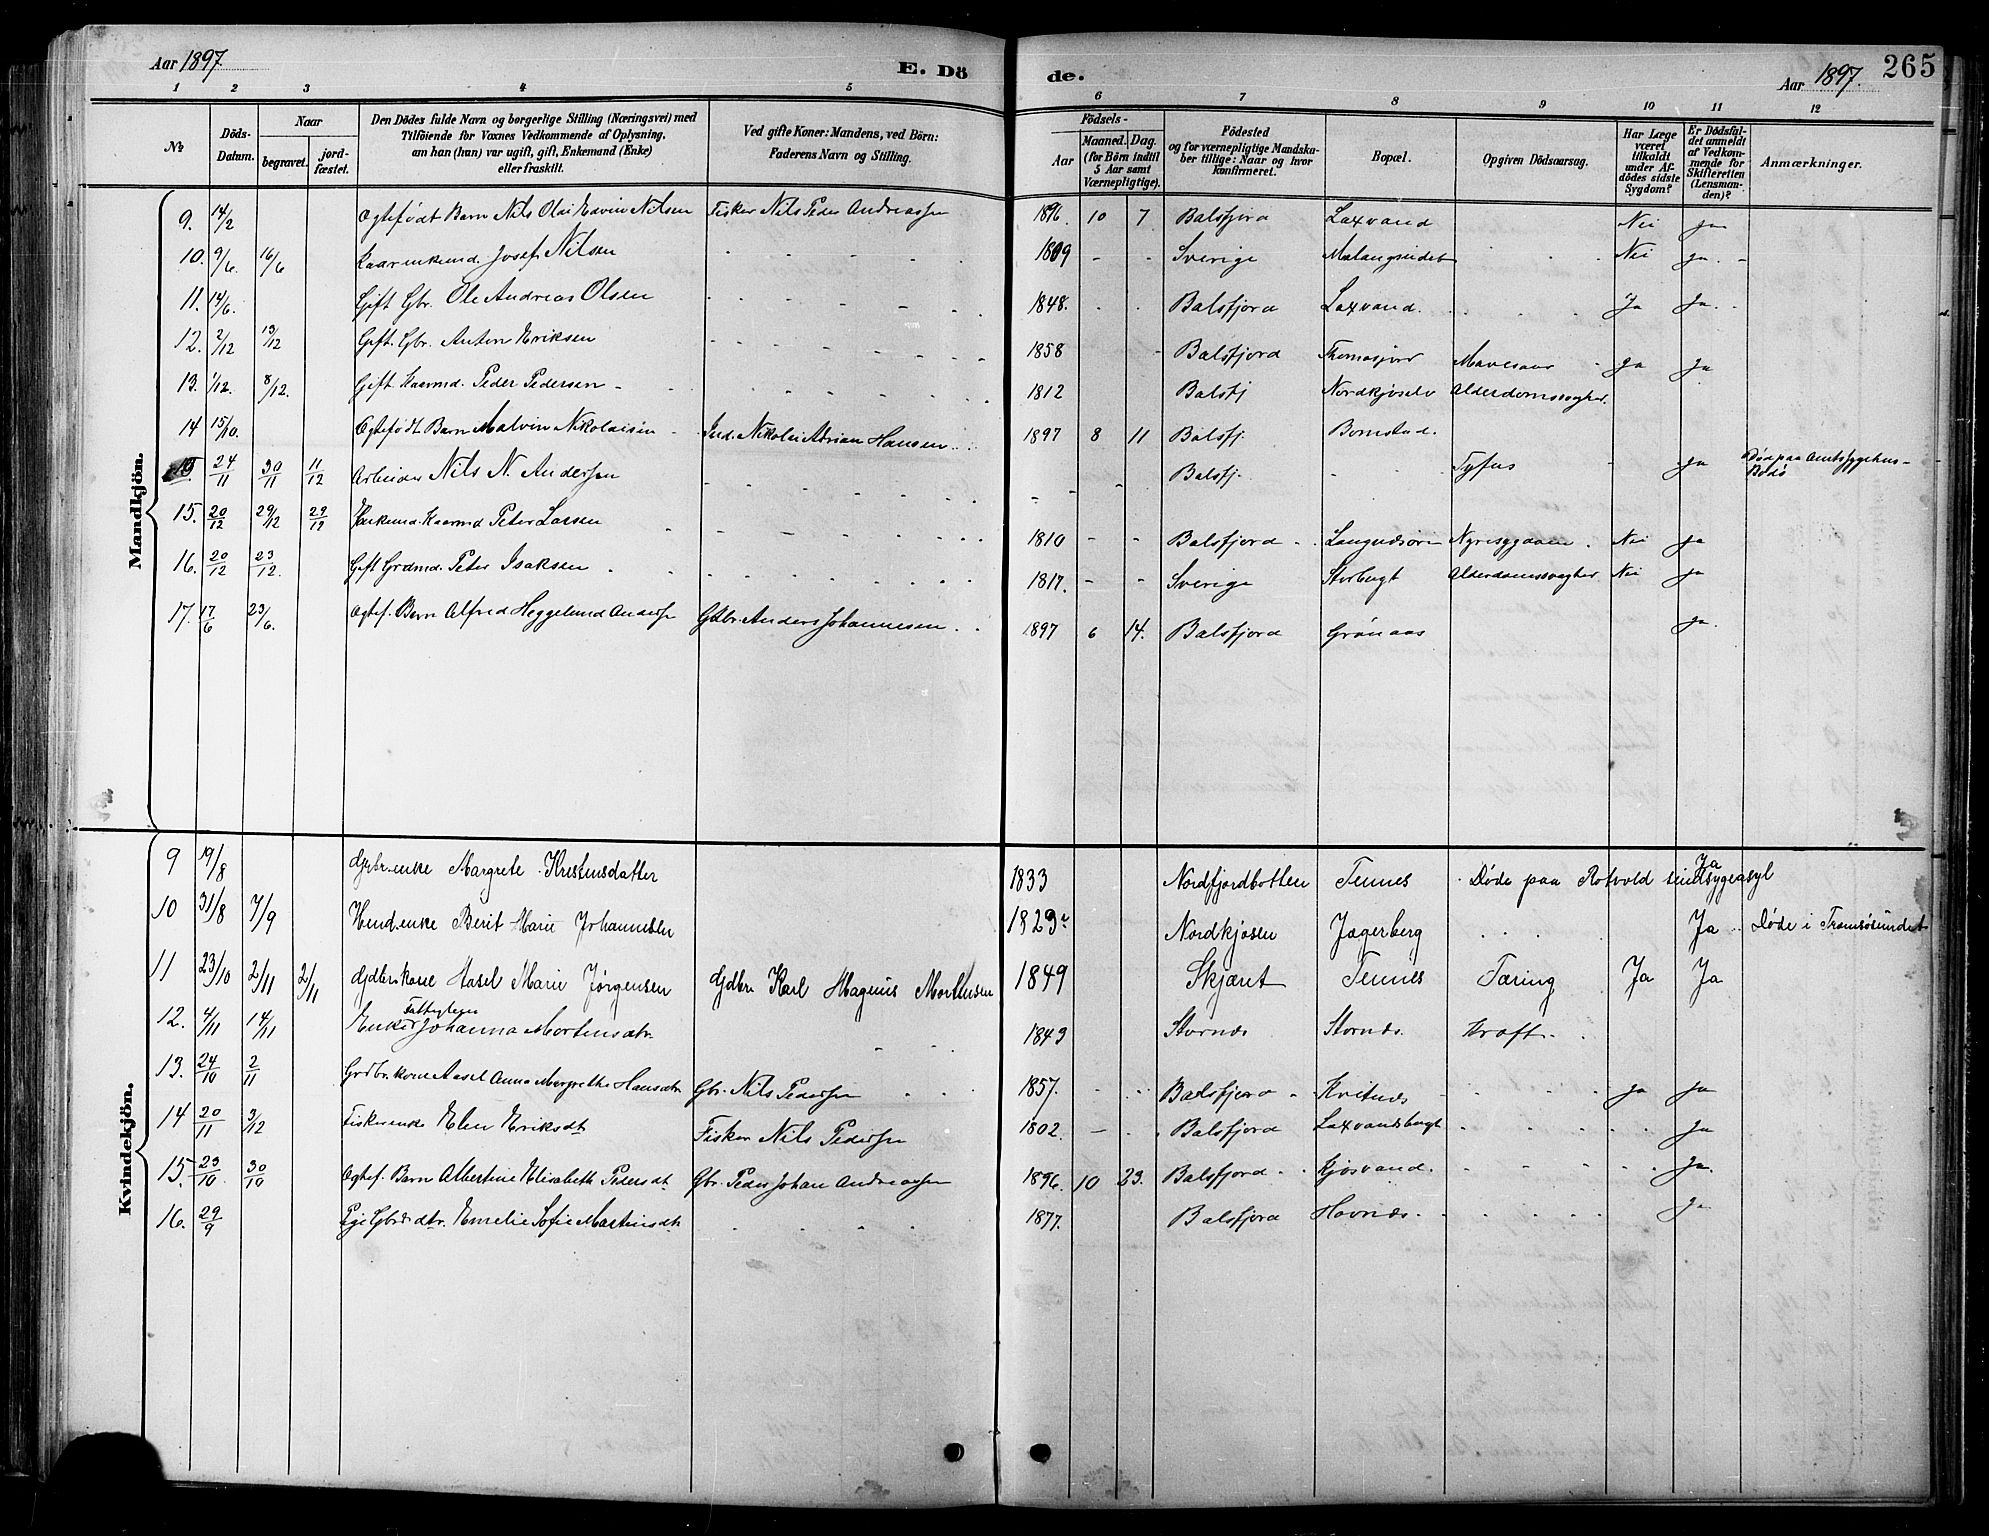 Aar 1897
E. Dö
de.
Aar 1897.
265
1 2 3 4 5 6 7 8 9 10 11 12
No
Döds-Datum.
Naar
begravet.
jord-fæstet.
Den Dödes fulde Navn og borgerlige Stilling (Næringsvei) med
Tilföiende for Voxnes Vedkommende af Oplysning,
om han (hun) var ugift, gift, Enkemand (Enke)
eller fraskilt.
Ved gifte Koner: Mandens, ved Börn:
Faderens Navn og Stilling.
Födsels-
Aar
Maaned. Dag.
(for Börn indtil
5 Aar samt
Værnepligtige).
Födested
og for værnepligtige Mandska-
ber tillige: Naar og hvor
konfirmeret.
Bopæl.
Opgiven Dödsaarsag.
Har Læge
været
tilkaldt
under Af-
dödes sidste
Sygdom?
Er Dödsfal-
det anmeldt
af Vedkom-
mende for
Skifteretten
(Lensman-
den)?
Anmærkninger.
Mandkjön.
9. 14/2 Ogtefødt Barn Nils Olai Edvin Nilsen Fisker Nils Peder Andreassen 1896. 10 7 Balsfjord Laxvand Nei ja
10. 9/6 16/6 Kaarenkemd. Josef Nilsen 1809 - - Sverige Malangseidet Nei Ja. -
11. 14/6. Gift Gbr. Ole Andreas Olsen 1848. Balsfjord Laxvand. Ja Ja.
12. 2/12 13/12 Gift. Gbr. Anton Eriksen 1858 Balsfjord Thomasjord Mavesaar ja Ja
13. 1/12. 8/12. Gift Kaarmd. Peder Pedersen 1812 Balsfj Nordkjoselv Alderdomssvaghed.
14 15/10. Ogtefødt Barn Malvin Nikolaisen Ind. Nikolai Adrian Hansen 1897 8 11 Balsfj. Bomstad.
15 24/11 30/11 11/12 Arbeider Nils N. Anderssen Balsfj. Tyfus ja Død paa Amtssygehus - Bodø
15. 20/12 29/12 29/12 Enkemd. Kaarmd Peter Larsen 1810 - - Balsfjord Nyresygdom Nei Ja
16. 20/12 23/12. Gift Grdmd. Peter Isaksen 1817. - - Sverige Storbugt Alderdomssvaghed Nei Ja
17. 17/6 23/6. Ogtef. Barn Alfred Heggelund Anderss. Gdbr. Anders Johannesen 1897 6 14. Balsfjord Grønaas Ja.
Kvindekjön.
9 19/8 Gdbr.enke Margrete Kristensdatter 1833 Nordfjordbotten Tennes Døde paa Rotvold sindsygeasyl Ja
10 31/8 7/9 Indenke Berit Marie Johannesen 1823 Nordkjosen Jagerberg Ja Døde i Tromsøsundet
11 23/10 2/11 2/11 Gdbrskone Aasel Marie Jørgensen Gdbr Karl Magnus Mortensen 1849 Skjæret Tennes Tæring Ja Ja
12. 4/11 14/11 Fattiglem Enke Johanna Mortensdtr. 1843 Stornæs Stornæs. Kræft
13. 24/10 2/11 Grdbr.kone Aasel Anna Margrethe Hansdtr Gbr. Nils Pederssen 1857. - Balsfjord Kvitnæs Ja Ja
14 20/11 3/12 Fiskerenke Elen Eriksdt Fisker Nils Pederssen 1802. - Balsfjord Laxvandsbugt Ja
15. 23/10 30/10 Ogtef. Barn Albertine Elisabeth Pedersdt. Gbr. Peder Johan Andreassen 1896. 10 23. Balsfjord Kjosvand. Ja.
16. 29/9 Pige Gbrdtr. Emelie Sofie Martinsdt. 1877. Balsfjord Havnæs. Ja